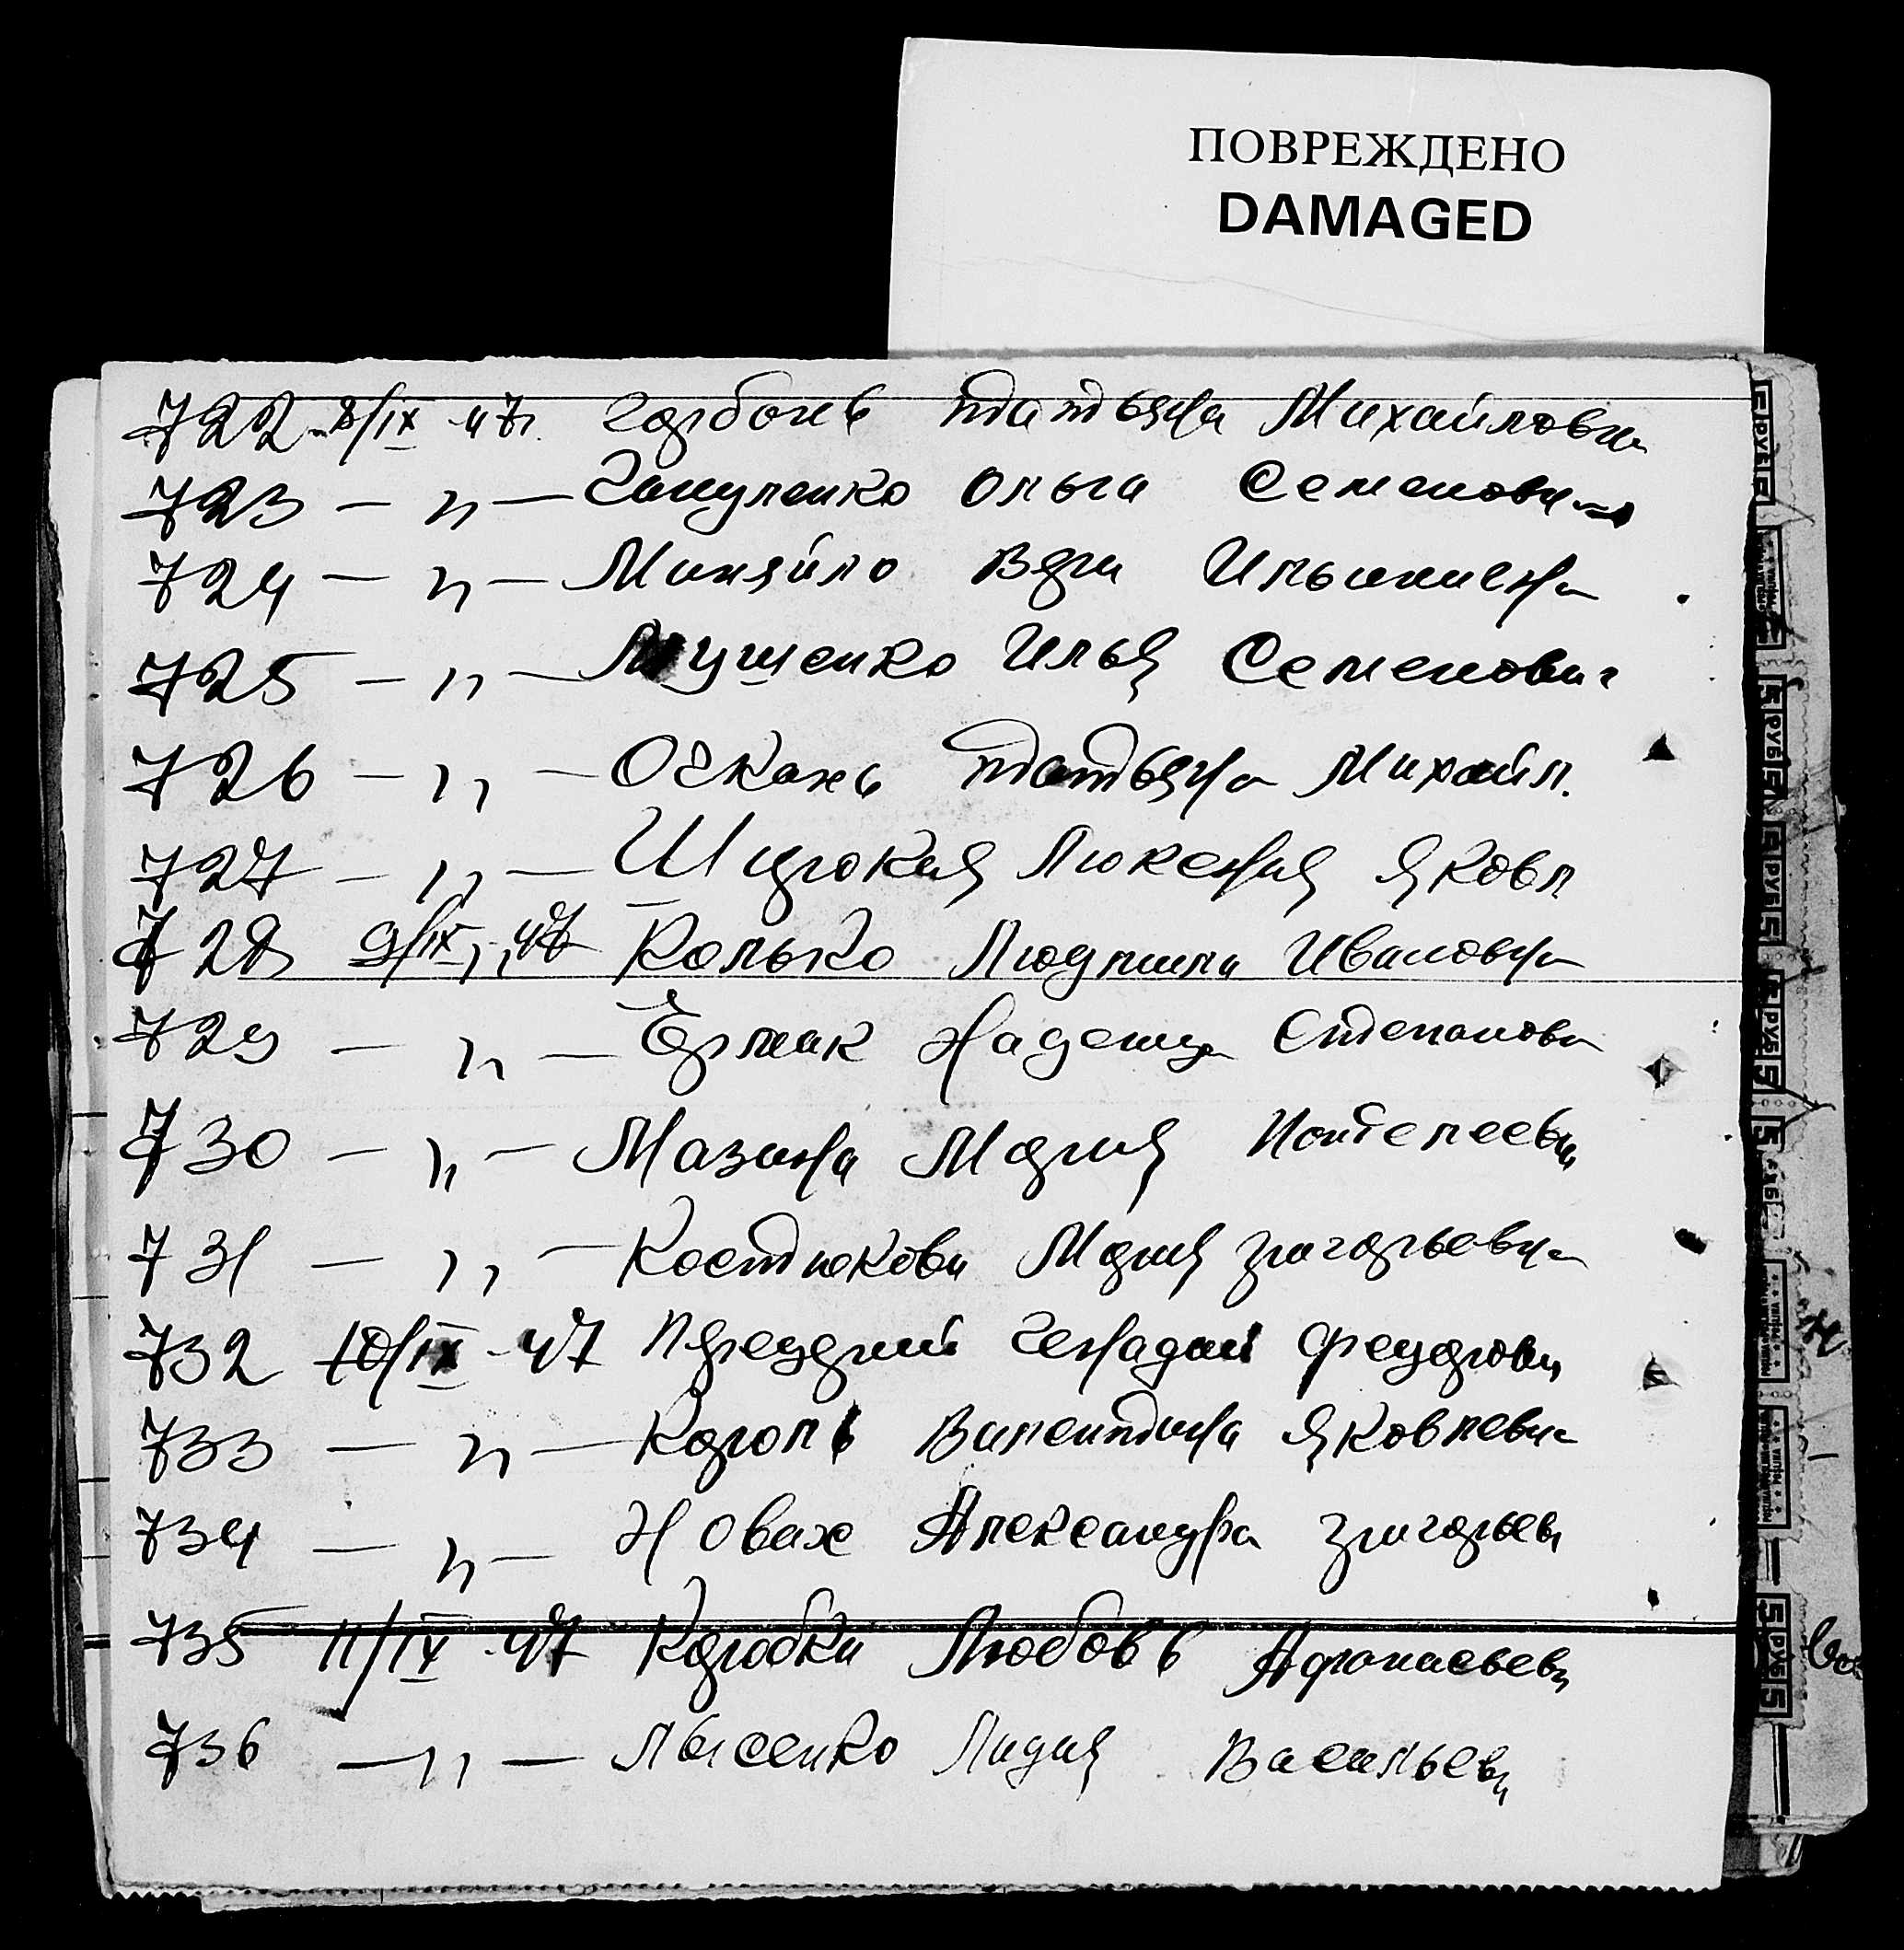 ПОВРЕЖДЕНО
DAMAGED
722 8/IX 47г. Горбонь Татьяна Михайловна
723 — " — Гануленко Ольга Семеновна
724 — " — Миняйло Вера Ильинична
725 — " — Глущенко Илья Семенович
726 — " — Очкань Татьяна Михайл.
727 — " — Широкая Люкения Яковл
728 9/IX 47 Колько Людмила Ивановна
729 — " — Ермак Надежда Степанов
730 — " — Мазина Мария Понтелеевн
731 — " — Костюкова Мария Григорьевна
732 10/IX 47 Геннадий Феодрови
733 — " — Король Валентина Яковлевна
734 — " — Новах Александра Григорьев
735 11/IX 47 Коробка Любовь Афонасьев
736 — " — Лысенко Лидия Васильев
5 РУБ 5
5 РУБ 5
5 РУБ 5
5 РУБ 5
5 РУБ 5